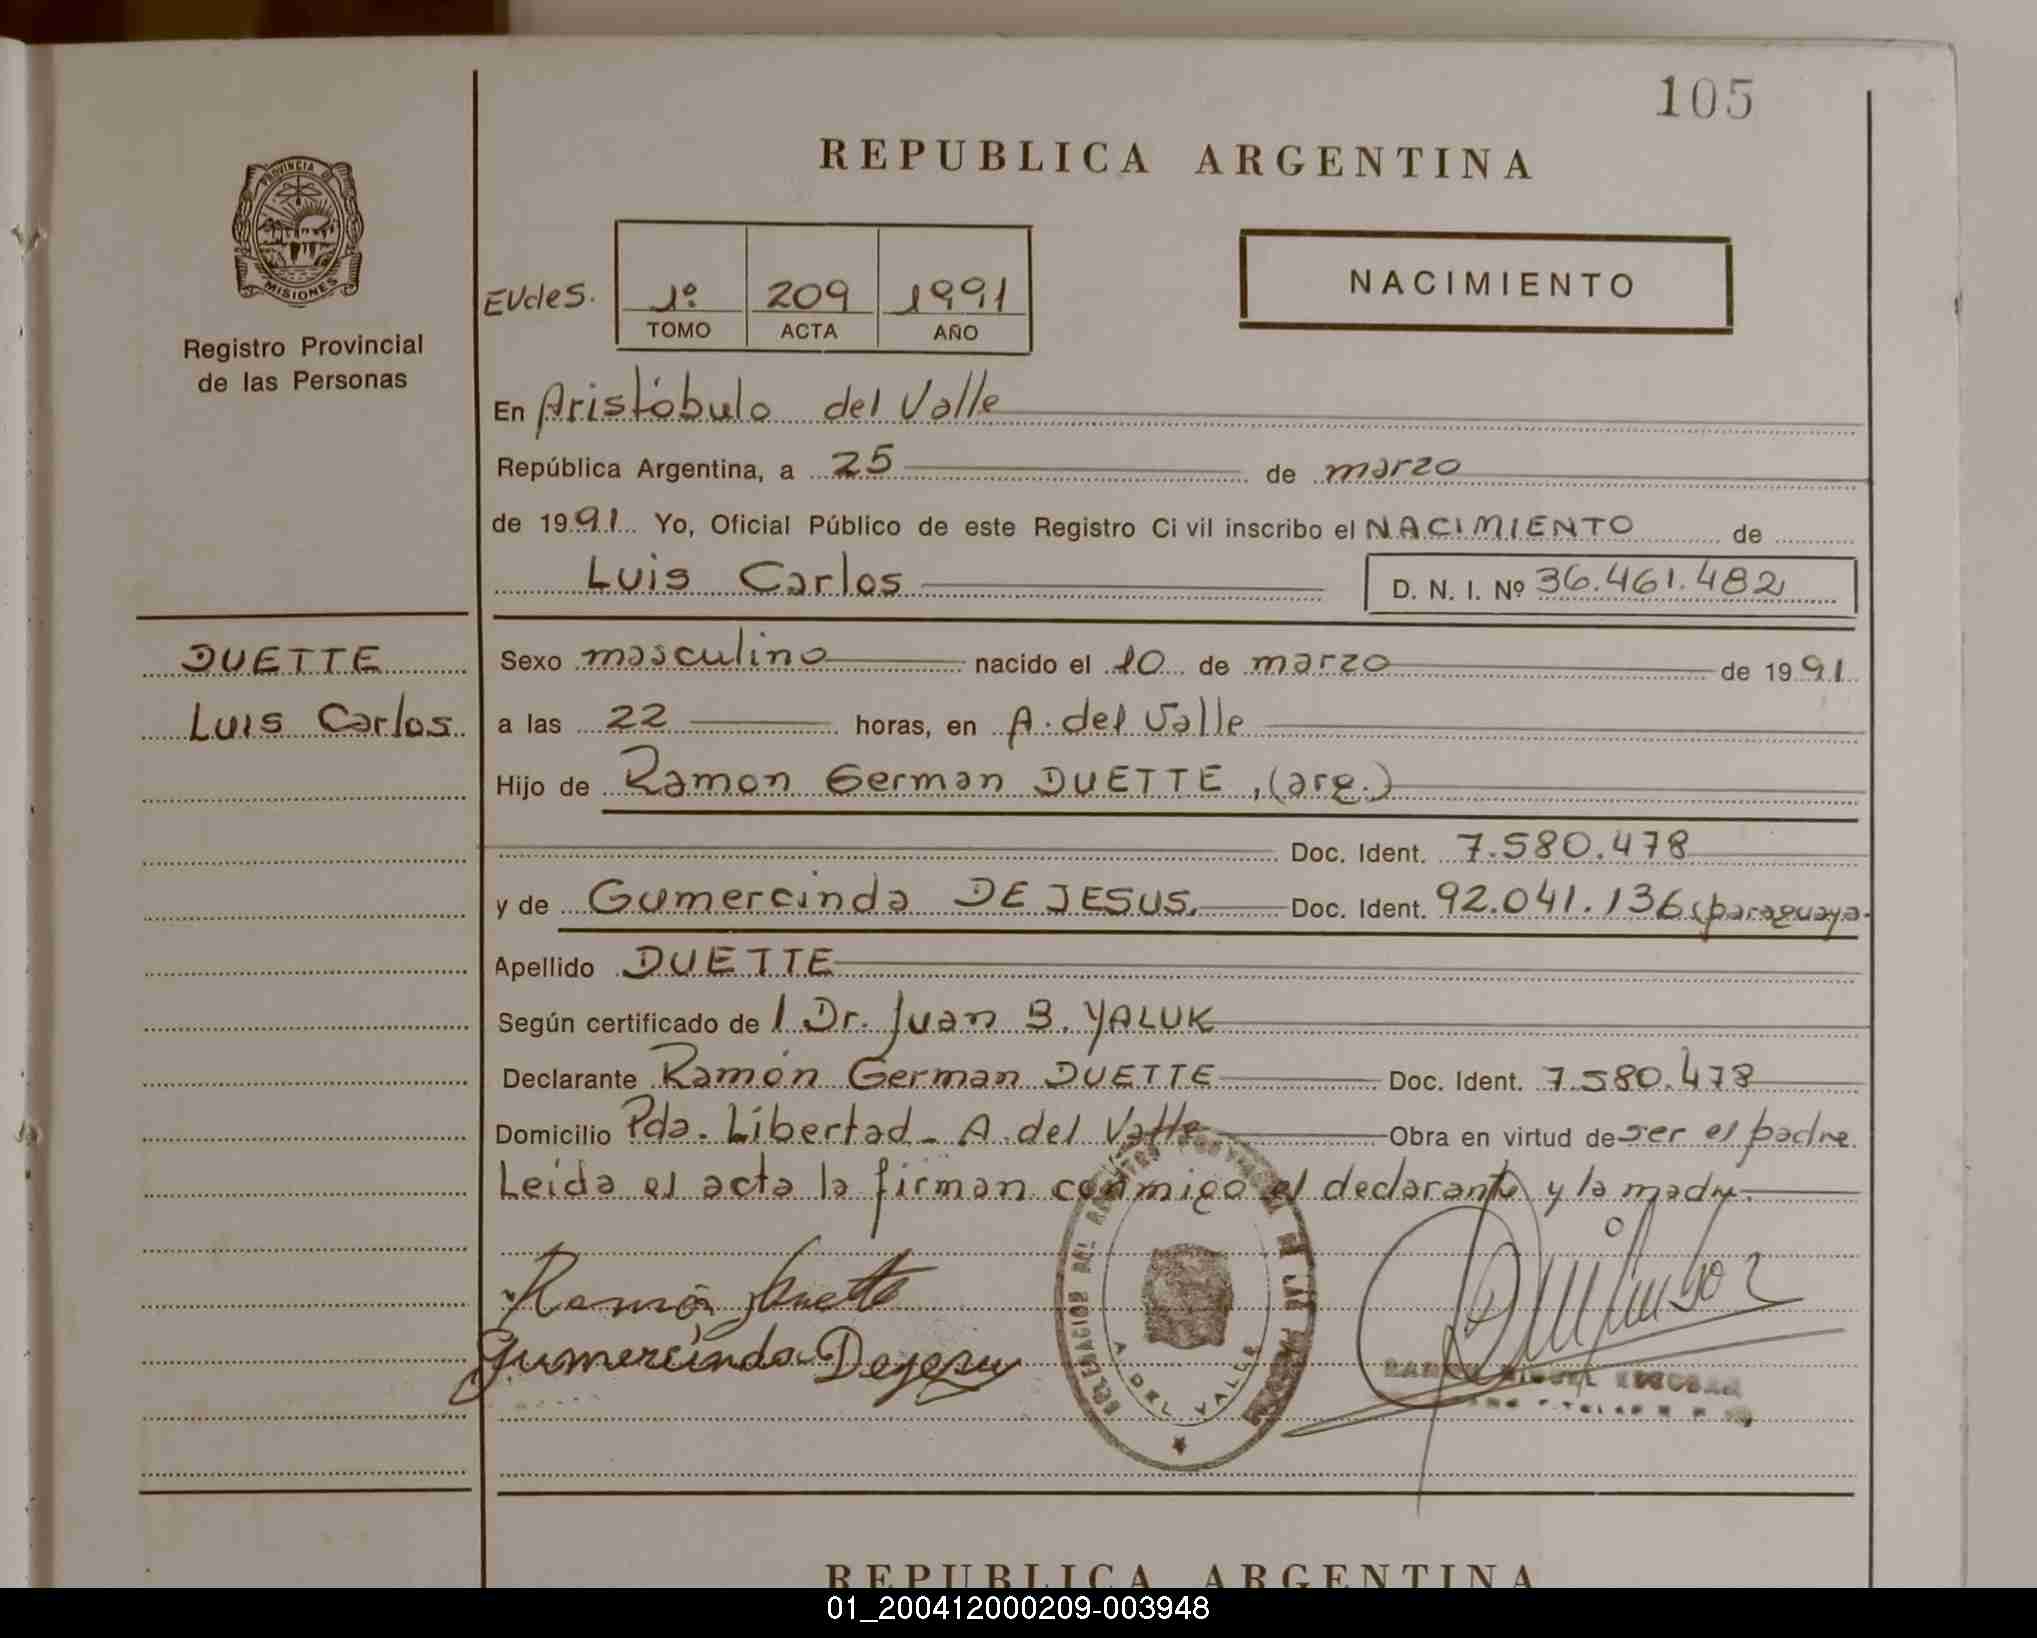 105
REPUBLICA ARGENTINA
PROVINCIA DE
MISIONES
Registro Provincial
de las Personas
EUdes. 1º 209 1991
TOMO ACTA AÑO
NACIMIENTO
En Aristóbulo del Valle
República Argentina, a 25 de marzo
de 1991 Yo, Oficial Público de este Registro Ci vil inscribo el NACIMIENTO de
Luis Carlos D. N. I. Nº 36.461.482
DUETTE
Luis Carlos
Sexo masculino nacido el 10 de marzo de 1991
a las 22 horas, en A. del Valle
Hijo de Ramon German DUETTE, (arg.)
Doc. Ident. 7.580.478
y de Gumercinda DE JESUS. Doc. Ident. 92.041.136 (paraguaya.
Apellido DUETTE
Según certificado de l Dr. Juan B. YALUK
Declarante Ramón German DUETTE Doc. Ident. 7.580.478
Domicilio Pda. Libertad - A. del Valle Obra en virtud de ser el padre.
Leída el acta la firman conmigo el declarante y la madre.
Ramón Duette
Gumercinda Dejesu
A. DEL VALLE
REPUBLICA ARGENTINA
01_200412000209-003948